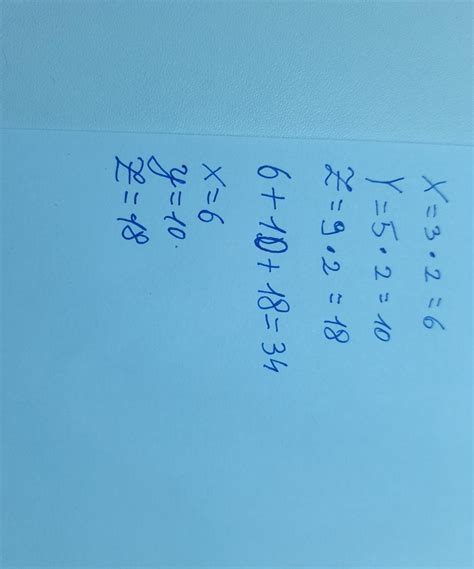 X = 3 · 2 = 6
Y = 5 · 2 = 10
Z = 9 · 2 = 18
6 + 10 + 18 = 34
X = 6
y = 10
Z = 18